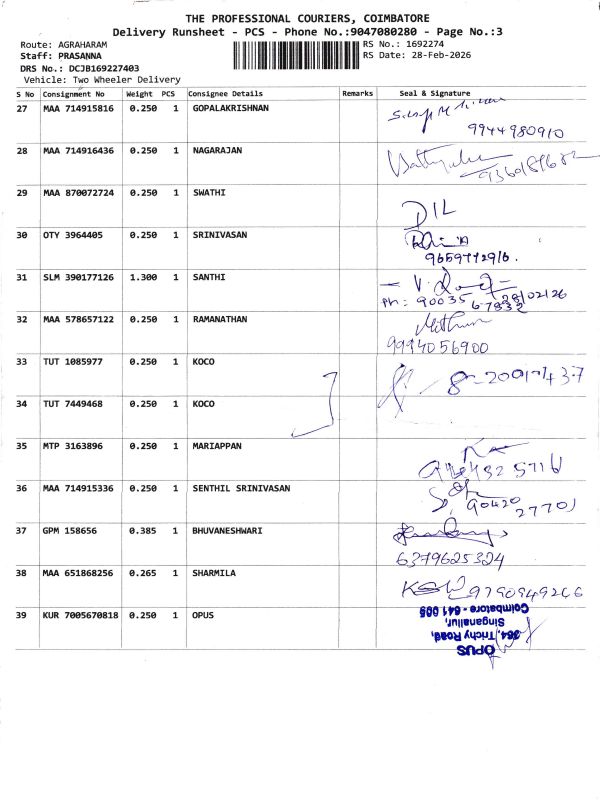 THE PROFESSIONAL COURIERS, COIMBATORE
Delivery Runsheet - PCS - Phone No.:9047080280 - Page No.:3
Route: AGRAHARAM RS No.: 1692274
Staff: PRASANNA RS Date: 28-Feb-2026
DRS No.: DCJB169227403
Vehicle: Two Wheeler Delivery
S No Consignment No Weight PCS Consignee Details Remarks Seal & Signature
27 MAA 714915816 0.250 1 GOPALAKRISHNAN
9944980910
28 MAA 714916436 0.250 1 NAGARAJAN
29 MAA 870072724 0.250 1 SWATHI
D/L
30 OTY 3964405 0.250 1 SRINIVASAN
31 SLM 390177126 1.300 1 SANTHI
28/02/26
Ph: 90035 67832
32 MAA 578657122 0.250 1 RAMANATHAN
Mithun
9994056900
33 TUT 1085977 0.250 1 KOCO
34 TUT 7449468 0.250 1 KOCO
35 MTP 3163896 0.250 1 MARIAPPAN
36 MAA 714915336 0.250 1 SENTHIL SRINIVASAN
90420
27701
37 GPM 158656 0.385 1 BHUVANESHWARI
6379625324
38 MAA 651868256 0.265 1 SHARMILA
9790949266
39 KUR 7005670818 0.250 1 OPUS
OPUS
364, Trichy Road,
Singanallur,
Coimbatore - 641 005